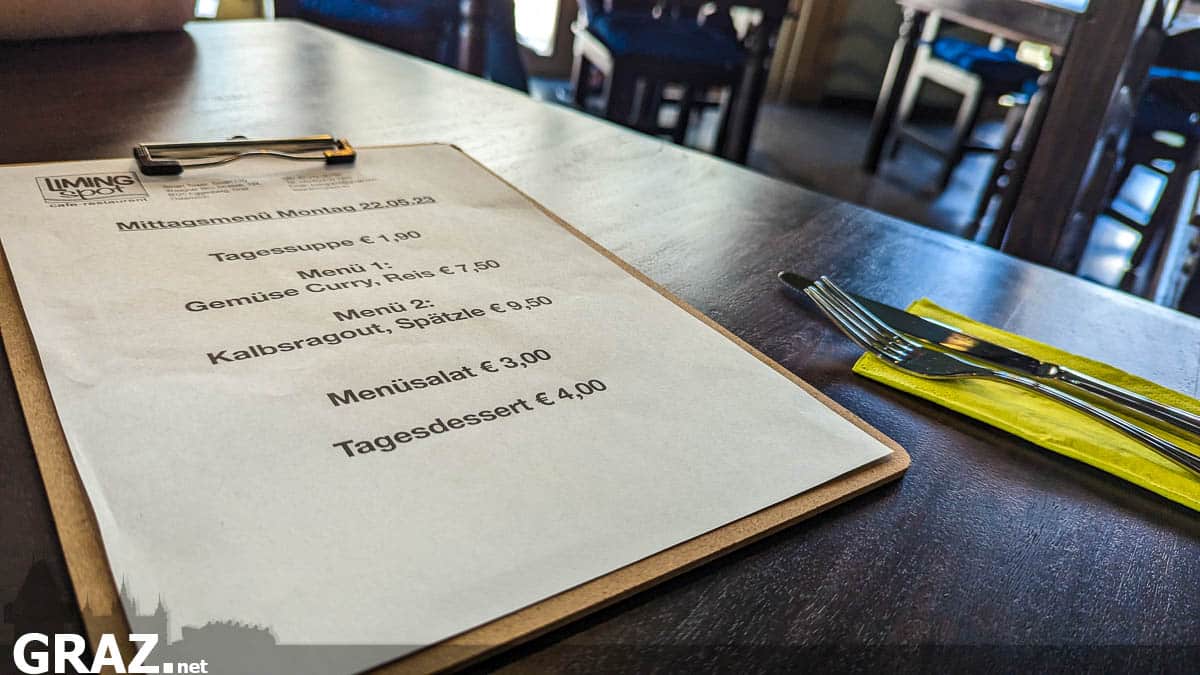 LIMING
spot
cafe-restaurant
Mittagsmenü Montag 22.05.23
Tagessuppe € 1,90
Menü 1:
Gemüse Curry, Reis € 7,50
Menü 2:
Kalbsragout, Spätzle € 9,50
Menüsalat € 3,00
Tagesdessert € 4,00
GRAZ.net